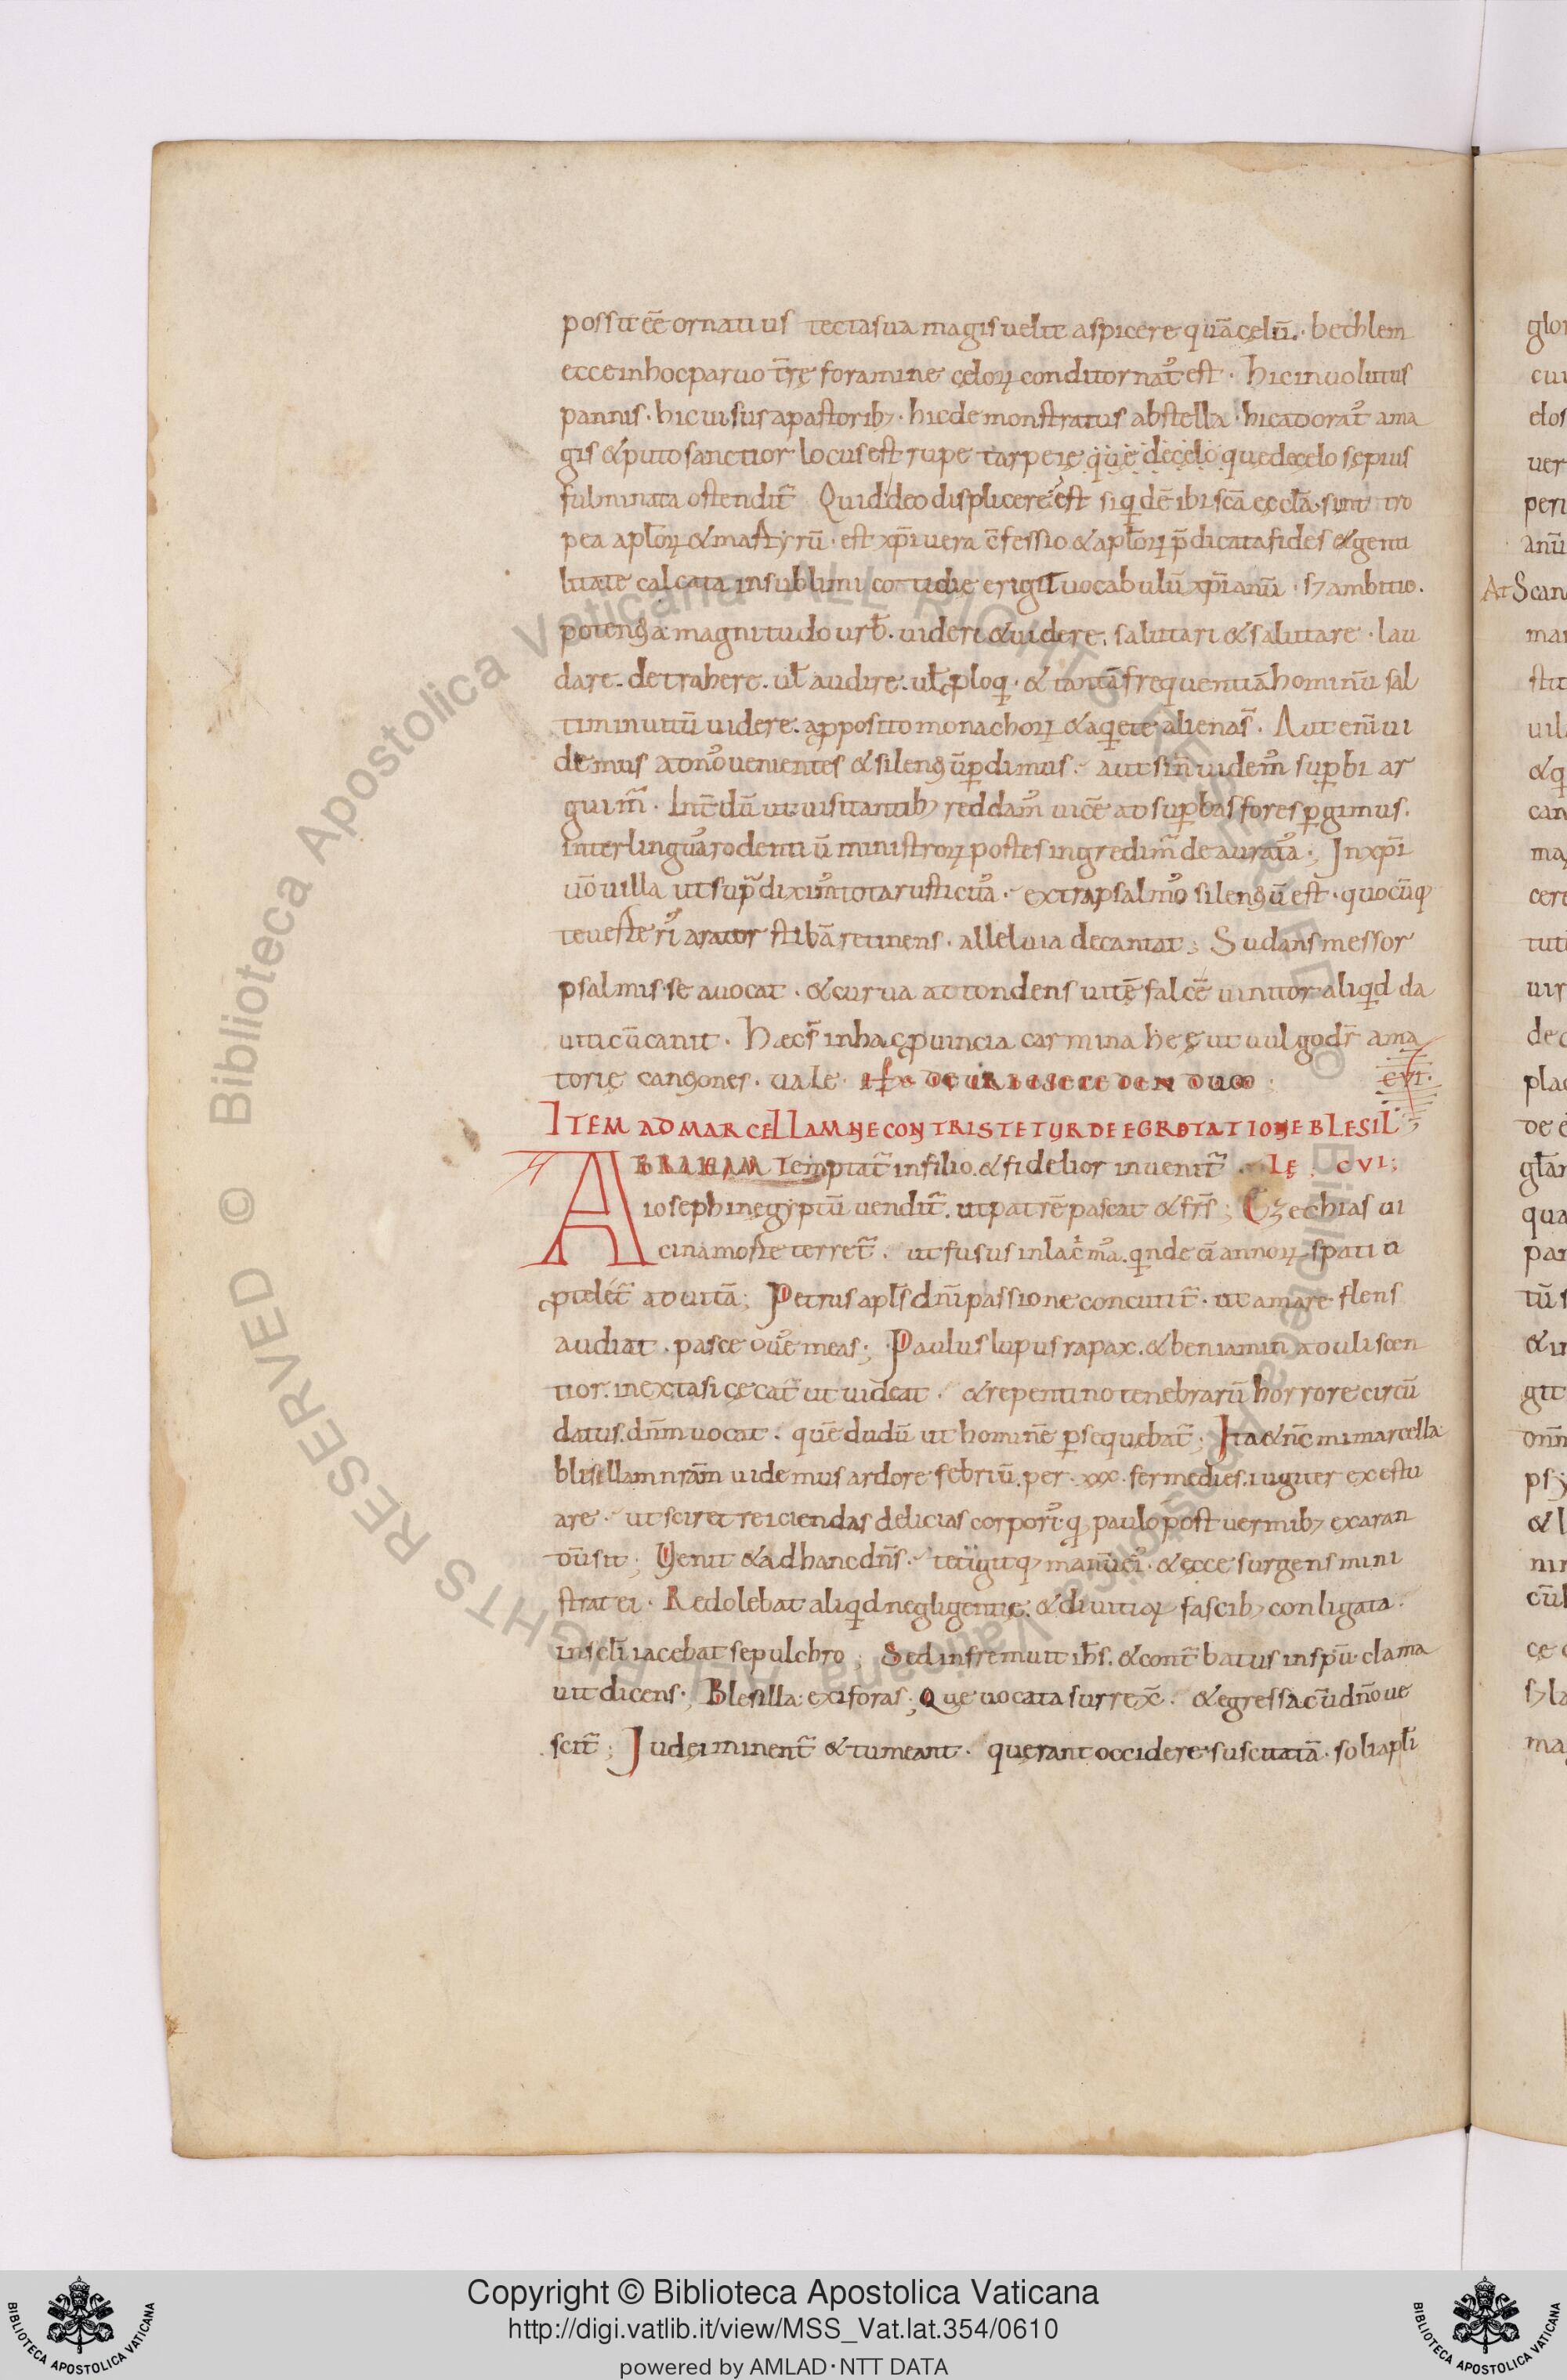 possit eē ornatius tecta sua magis uelit aspicere quā cęlū. bethlem
ecce in hoc paruo t̄rę foramine cęloꝝ conditor nat᷒ est. hic inuolutus
pannis. hic uisus a pastorib; hic demonstratus ab stella. hic adorat᷒ a ma
gis & puto sanctior locus est rupe tarpeię quę de cęlo que de cęlo sępius
fulminata ostendit᷑ Quid deo displicere est siqdē ibi scā ęcclā sunt tro
pea aplōꝝ & martyrū. est xp̄i uera c̄fessio & aplōꝝ p̄dicata fides & genti
litate calcata in sublimi cottidię erigit uocabulū xp̄ianū. sꝫ ambitio.
potentia magnitudo urb̄. uideri & uidere. salutari & salutare. lau
dare. detrahere. ul̄ audire. ul̄ ꝓloq. & tantā frequentiā hominū sal
tim inuitū uidere. a pposito monachoꝝ & a qete alienas̄. Aut enī ui
demus ad no᷒ uenientes & silentiū ꝑdimus. aut si n̄ uidem᷒ suꝑbi ar
guim᷑. Int̄dū ut uisitantib; reddam᷒ uicē ad suꝑbas fores ꝑgimus.
inter lingua᷒ rodentiū ministroꝝ postes ingredim᷑ de aurata᷒; In xp̄i
uō uilla ut supra dixim᷒ tota rusticita᷒. extra psalmo᷒ silentiū est. quocūq;
te uesteri᷒ arator stibā retinens. alleluia decantat; Sudans messor
psalmis se auocat. & curua attondens uitē falcē uinitor aliqd da
uiticū canit. Hæc s̄ in hac ꝓuincia carmina hęę ut uulgo dr̄ ama
torię cantiones. uale. DE URBE SECEDENDUM CVI.
ITEM AD MARCELLAM NE CONTRISTETUR DE EGROTATIONE BLESIL
ABRAHAM temptat᷑ in filio. & fidelior inuenit᷑. LĘ. CVI;
ioseph in egyptū uendit᷑. ut patrē pascat & fr̄s; Ezechias ui
cina morte terret᷑. ut fusus in lac̄ma᷒. qndecī annoꝝ spatio
ꝓtelet᷑ ad uitā; Petrus apl̄s dn̄i passione concutit᷑. ut amare flens
audiat. pasce oue᷒ meas; Paulus lupus rapax. & beniamin adouliscen
tior. in extasi cęcat᷑ ut uideat. & repentino tenebrarū horrore circū
datus. dn̄m uocat. quē dudū ut hominē ꝑsequebat᷑; Ita & nc̄ mi marcella
blisellam nrām uidemus ardore febriū. per. xxx. ferme dies. iugiter exestu
are. ut sciret reiciendas delicias corpori᷒. q paulo post uermib; exaran
dū sit; Venit & ad hanc dn̄s. tetigitq; manū ei᷒. & ecce surgens mini
strat ei. Redolebat aliqd negligentię. & diuitiaꝝ fascib; conligata.
in sclī iacebat sepulchro; Sed infremuit ih̄s. & cont᷑batus in spū. clama
uit dicens; Blesilla: exi foras; Quę uocata surrex̄. & egressa cū dn̄o ue
scit᷑; Iudęi minent᷑ & tumeant. quęrant occidere suscitatā. soli apl̄i
glo
cu
clos
uer
peri
anū
At Scan
mar
stit
uil
&q
can
ma
cere
tuti
uir
de c
plac
de e
gl̄ar
qua
par
tū s
& ir
git
om̄
psy
& l
nir
cūl
ce c
sꝫ la
ma
Biblioteca Apostolica Vaticana ALL RIGHTS RESERVED ©
Copyright © Biblioteca Apostolica Vaticana
http://digi.vatlib.it/view/MSS_Vat.lat.354/0610
powered by AMLAD·NTT DATA
BIBLIOTECA APOSTOLICA VATICANA
BIBLIOTECA APOSTOLICA VATICANA